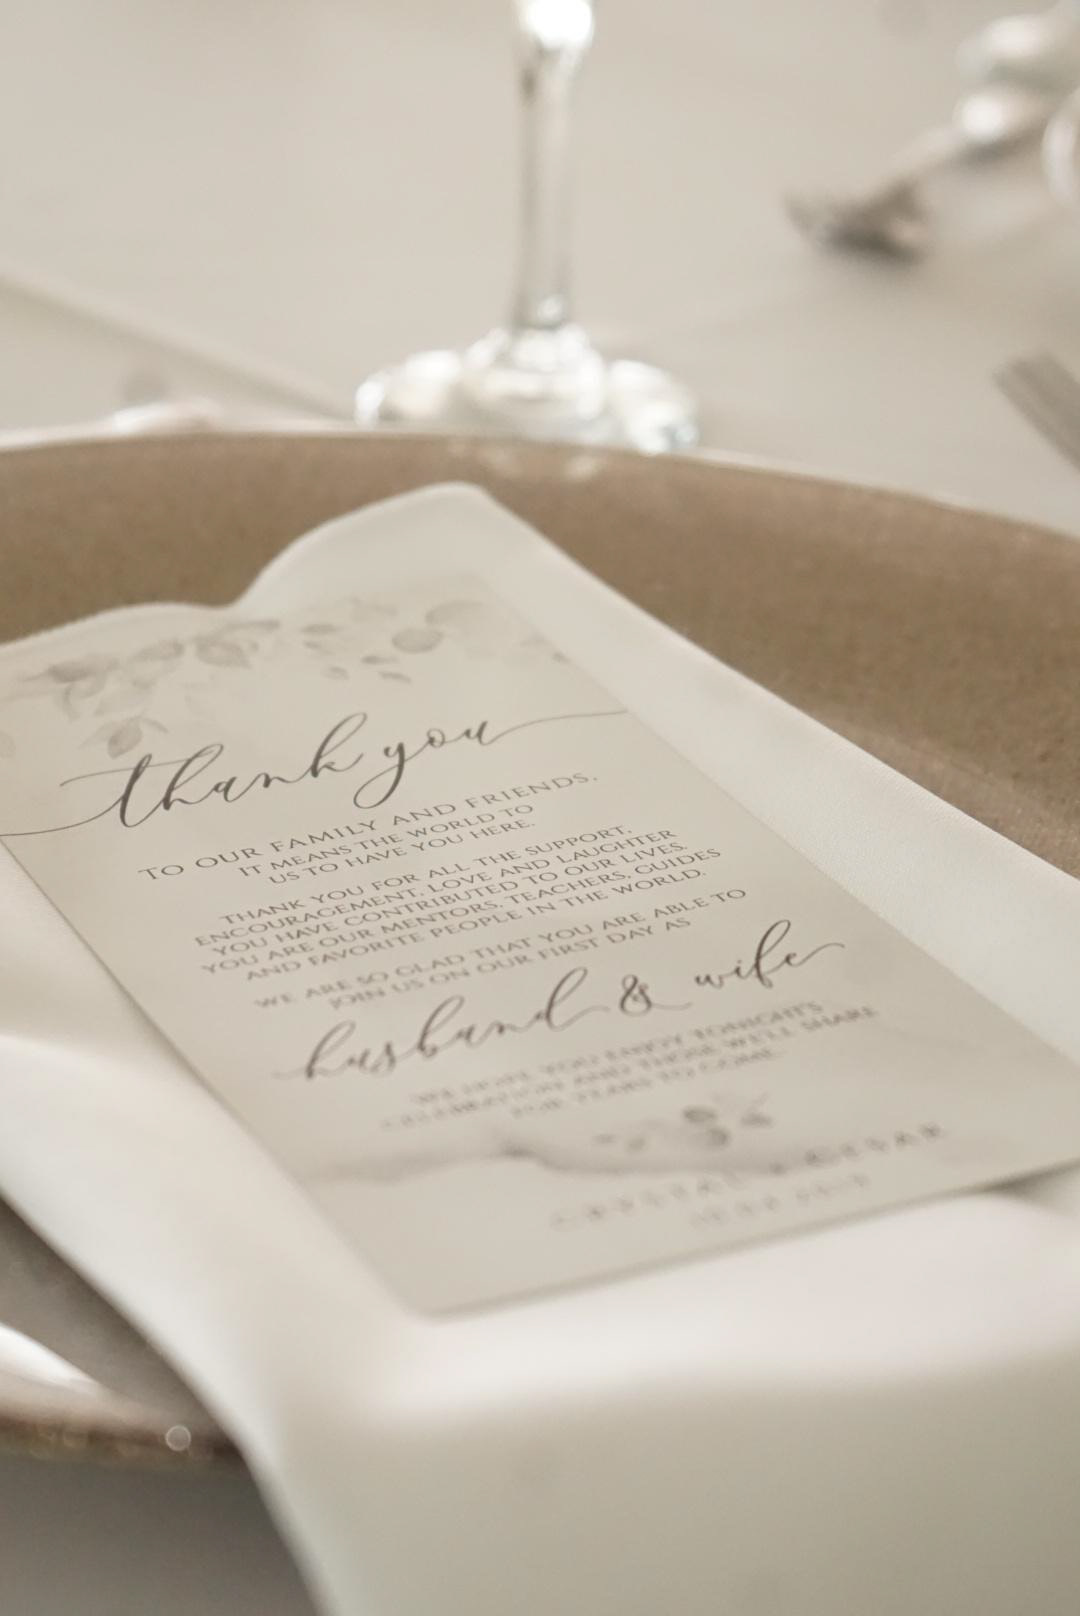 thank you
TO OUR FAMILY AND FRIENDS,
IT MEANS THE WORLD TO
US TO HAVE YOU HERE.
THANK YOU FOR ALL THE SUPPORT,
ENCOURAGEMENT, LOVE AND LAUGHTER
YOU HAVE CONTRIBUTED TO OUR LIVES.
YOU ARE OUR MENTORS, TEACHERS, GUIDES
AND FAVORITE PEOPLE IN THE WORLD.
WE ARE SO GLAD THAT YOU ARE ABLE TO
JOIN US ON OUR FIRST DAY AS
husband & wife
WE HOPE YOU ENJOY TONIGHT'S
CELEBRATION AND THOSE WE'LL SHARE
FOR YEARS TO COME.